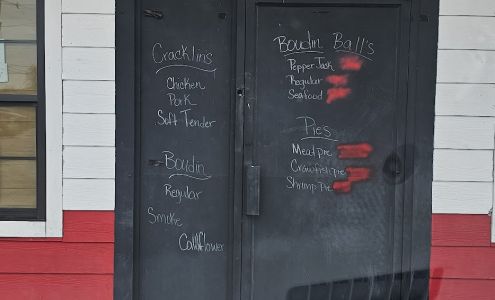 Cracklins
Chicken
Pork
Soft Tender
Boudin
Regular
Smoke
Califlower
Boudin Ball's
Pepper Jack
Regular
Seafood
Pies
Meat pie
Crawfish pie
Shrimp Pie